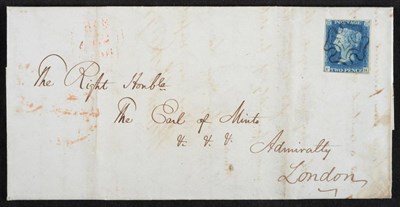 POSTAGE
TWO PENCE
The Right Honble
The Earl of Minto
&. &. &.
Admiralty
London